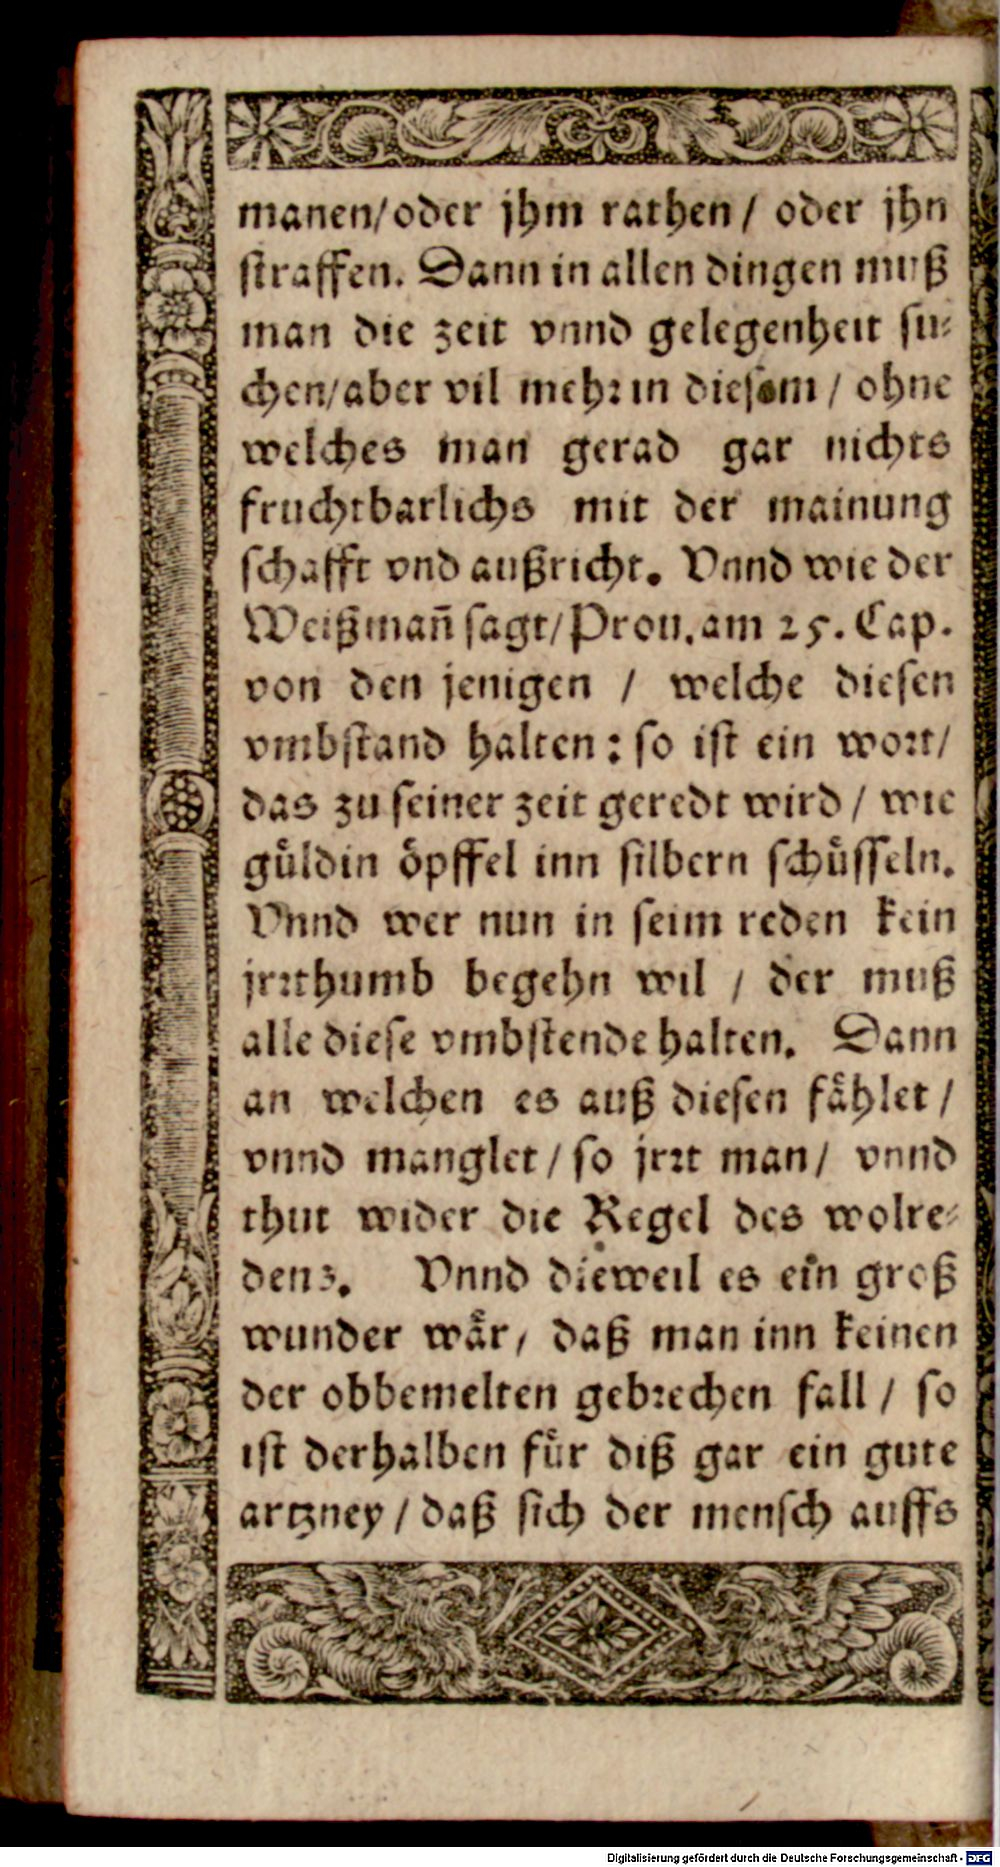 manen/oder jhm rathen / oder jhn
straffen. Dann in allen dingen muß
man die zeit vnnd gelegenheit su⸗
chen/aber vil mehr in diesem / ohne
welches man gerad gar nichts
fruchtbarlichs mit der mainung
schafft vnd außricht. Vnnd wie der
Weißmañ sagt/Prou.am 25. Cap.
von den jenigen / welche diesen
vmbstand halten: so ist ein wort/
das zu seiner zeit geredt wird / wie
güldin öpffel inn silbern schüsseln.
Vnnd wer nun in seim reden kein
jrrthumb begehn wil / der muß
alle diese vmbstende halten. Dann
an welchen es auß diesen fählet /
vnnd manglet / so jrrt man / vnnd
thut wider die Regel des wolre⸗
dens. Vnnd dieweil es ein groß
wunder wär, daß man inn keinen
der obbemelten gebrechen fall / so
ist derhalben für diß gar ein gute
artzney / daß sich der mensch auffs
Digitalisierung gefördert durch die Deutsche Forschungsgemeinschaft - DFG